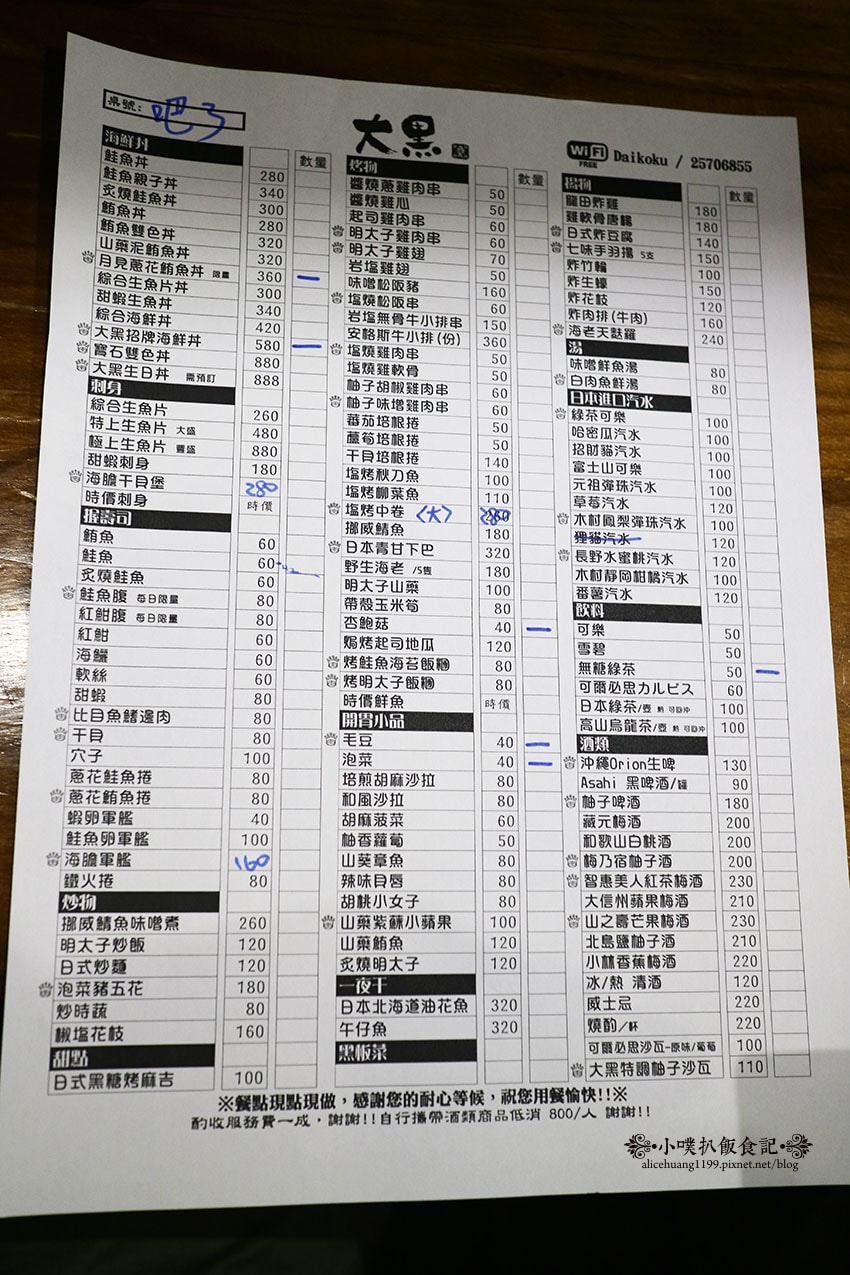 桌號: 吧3
大黑
WiFi FREE Daikoku / 25706855
海鮮丼 數量
鮭魚丼 280
鮭魚親子丼 340
炙燒鮭魚丼 300
鮪魚丼 280
鮪魚雙色丼 320
山藥泥鮪魚丼 320
月見蔥花鮪魚丼 限量 360 一
綜合生魚片丼 300
甜蝦生魚丼 340
綜合海鮮丼 420
大黑招牌海鮮丼 580 一
寶石雙色丼 880
大黑生日丼 需預訂 888
刺身
綜合生魚片 260
特上生魚片 大盛 480
極上生魚片 豐盛 880
甜蝦刺身 180
海膽干貝堡 280
時價刺身 時價
握壽司
鮪魚 60
鮭魚 60
炙燒鮭魚 60
鮭魚腹 每日限量 80
紅魽腹 每日限量 80
紅魽 60
海鱺 60
軟絲 60
甜蝦 80
比目魚鰭邊肉 80
干貝 80
穴子 100
蔥花鮭魚捲 80
蔥花鮪魚捲 80
蝦卵軍艦 40
鮭魚卵軍艦 100
海膽軍艦 160
鐵火捲 80
炒物
挪威鯖魚味噌煮 260
明太子炒飯 120
日式炒麵 120
泡菜豬五花 180
炒時蔬 80
椒塩花枝 160
甜點
日式黑糖烤麻吉 100
烤物 數量
醬燒蔥雞肉串 50
醬燒雞心 50
起司雞肉串 60
明太子雞肉串 60
明太子雞翅 70
岩塩雞翅 50
味噌松阪豬 160
塩燒松阪串 60
岩塩無骨牛小排串 150
安格斯牛小排(份) 360
塩燒雞肉串 50
塩燒雞軟骨 50
柚子胡椒雞肉串 60
柚子味增雞肉串 60
蕃茄培根捲 50
蘆筍培根捲 50
干貝培根捲 140
塩烤秋刀魚 100
塩烤柳葉魚 110
塩烤中卷 〈大〉 280
挪威鯖魚 180
日本青甘下巴 320
野生海老 /5隻 180
明太子山藥 100
帶殼玉米筍 80
杏鮑菇 40 一
焗烤起司地瓜 120
烤鮭魚海苔飯糰 80
烤明太子飯糰 80
時價鮮魚 時價
開胃小品
毛豆 40 一
泡菜 40 一
培煎胡麻沙拉 80
和風沙拉 80
胡麻菠菜 60
柚香蘿蔔 50
山葵章魚 80
辣味貝唇 80
胡桃小女子 80
山藥紫蘇小蘋果 100
山藥鮪魚 120
炙燒明太子 120
一夜干
日本北海道油花魚 320
午仔魚 320
黑板菜
揚物 數量
龍田炸雞 180
雞軟骨唐楊 180
日式炸豆腐 140
七味手羽揚 5支 150
炸竹輪 100
炸生蠔 150
炸花枝 120
炸肉排(牛肉) 160
海老天麩羅 240
湯
味噌鮮魚湯 80
白肉魚鮮湯 80
日本進口汽水
綠茶可樂 100
哈密瓜汽水 100
招財貓汽水 100
富士山可樂 100
元祖彈珠汽水 100
草莓汽水 120
木村鳳梨彈珠汽水 100
狸貓汽水 120
長野水蜜桃汽水 120
木村靜岡柑橘汽水 100
番薯汽水 120
飲料
可樂 50
雪碧 50
無糖綠茶 50 一
可爾必思カルピス 60
日本綠茶/壺 熱 可回沖 100
高山烏龍茶/壺 熱 可回沖 100
酒類
沖繩Orion生啤 130
Asahi 黑啤酒/罐 90
柚子啤酒 180
藏元梅酒 200
和歌山白桃酒 200
梅乃宿柚子酒 200
智惠美人紅茶梅酒 230
大信州蘋果梅酒 210
山之壽芒果梅酒 230
北島鹽柚子酒 210
小林香蕉梅酒 220
冰/熱 清酒 120
威士忌 220
燒酌/杯 220
可爾必思沙瓦-原味/葡萄 100
大黑特調柚子沙瓦 110
※餐點現點現做，感謝您的耐心等候，祝您用餐愉快!!※
酌收服務費一成，謝謝!!自行攜帶酒類商品低消 800/人 謝謝!!
小噗扒飯食記
alicehuang1199.pixnet.net/blog